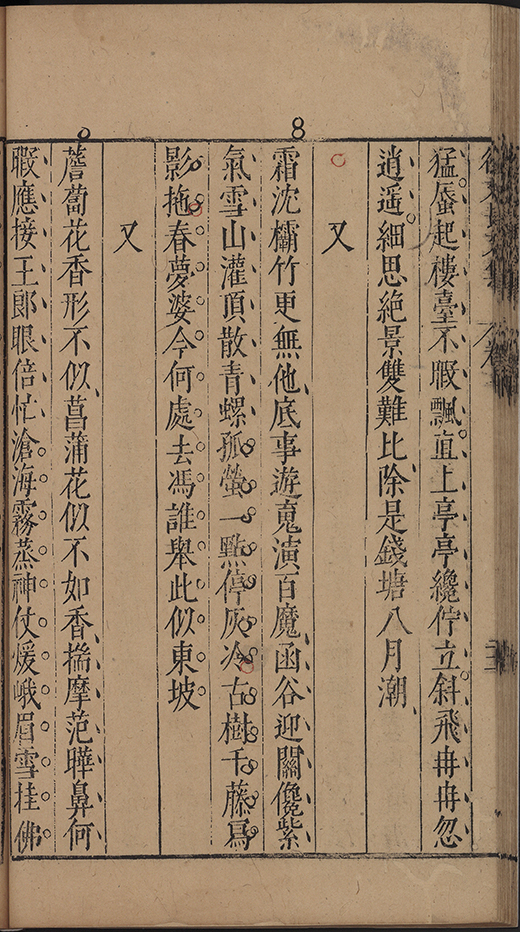 8
徐文長文集
猛蜃起樓臺不暇飄直上亭亭纔佇立斜飛冉冉忽
逍遥細思絶景雙難比除是錢塘八月潮
又
霜沈欘竹更無他底事遊䰟演百魔函谷迎關儳紫
氣雪山灌頂散青螺孤螢一點停灰冷古樹千藤寫
影拖春夢婆今何處去馮誰舉此似東坡
又
薝蔔花香形不似菖蒲花似不如香揣摩范曄鼻何
暇應接王郎眼倍忙滄海霧蒸神仗煖峨眉雪挂佛